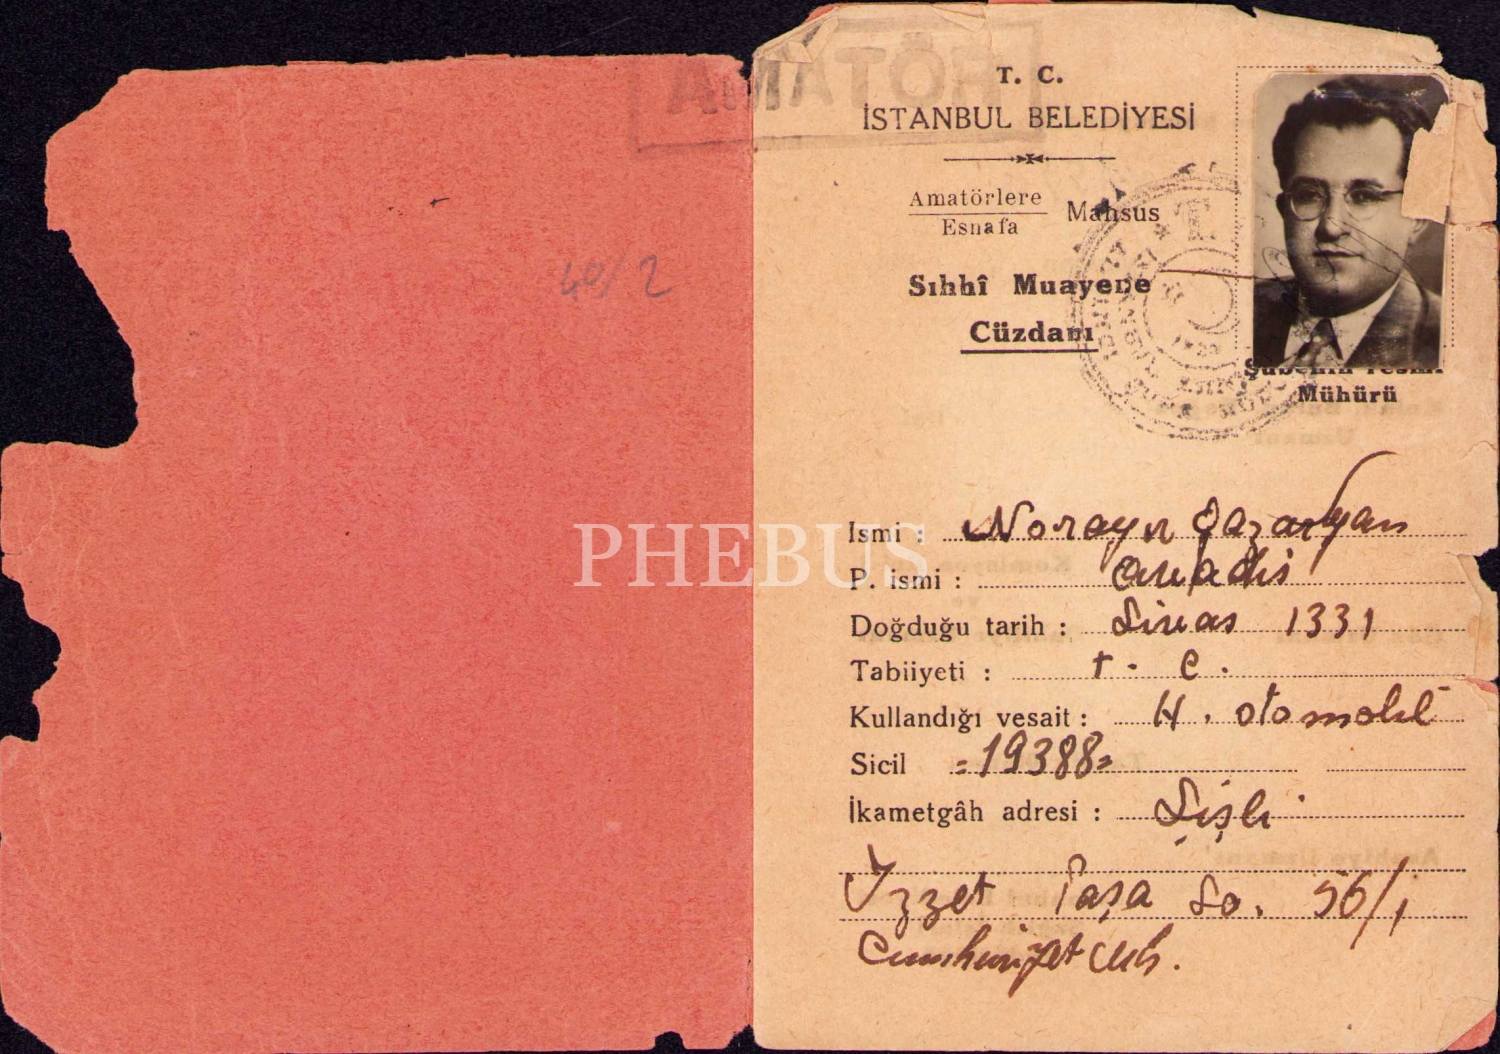 AMATÖR
T. C.
İSTANBUL BELEDİYESİ
Amatörlere
Esnafa
Mahsus
Sıhhî Muayene
Cüzdanı
Şubenin resmî
Mühürü
40/2
PHEBUS
İsmi : Norayr Gazaryan
P. ismi :
Doğduğu tarih : Sivas 1331
Tabiiyeti : T. C.
Kullandığı vesait : H. otomobil
Sicil =19388=
İkametgâh adresi : Şişli
İzzet Paşa So. 56/1
Cumhuriyet Mh.